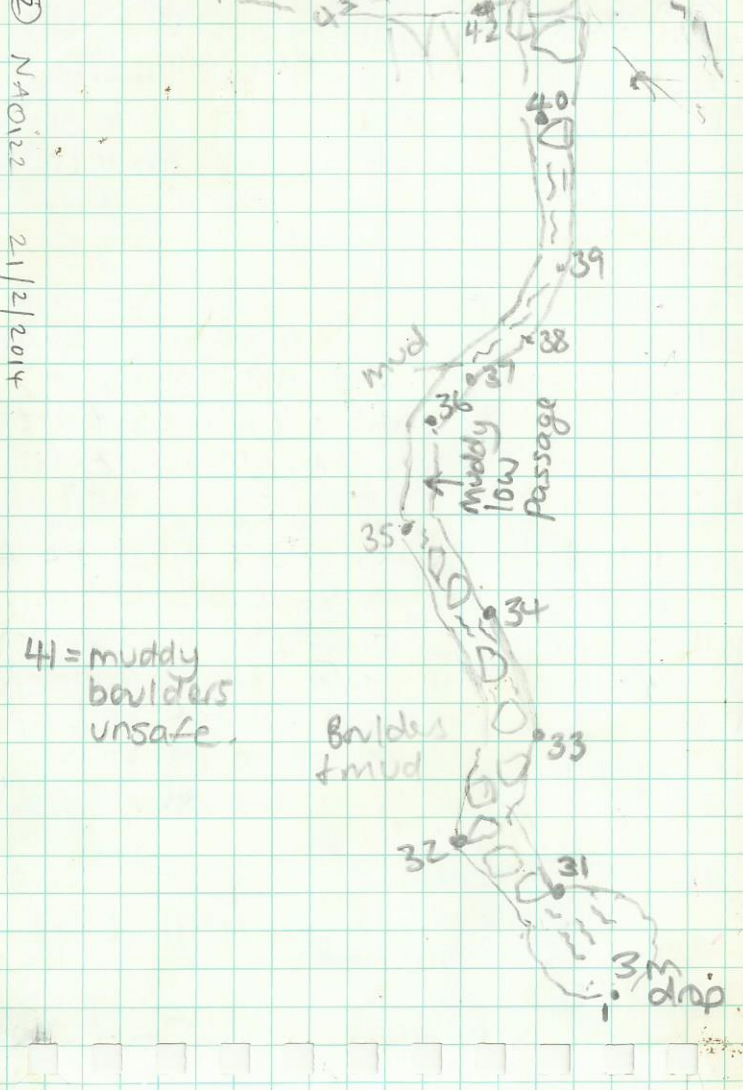 ② NAO122 21/2/2014
42
40
39
38
mud
37
36
muddy
low
passage
35
34
41 = muddy
boulders
unsafe.
33
Boulders
+ mud
32
31
3m
drop
1